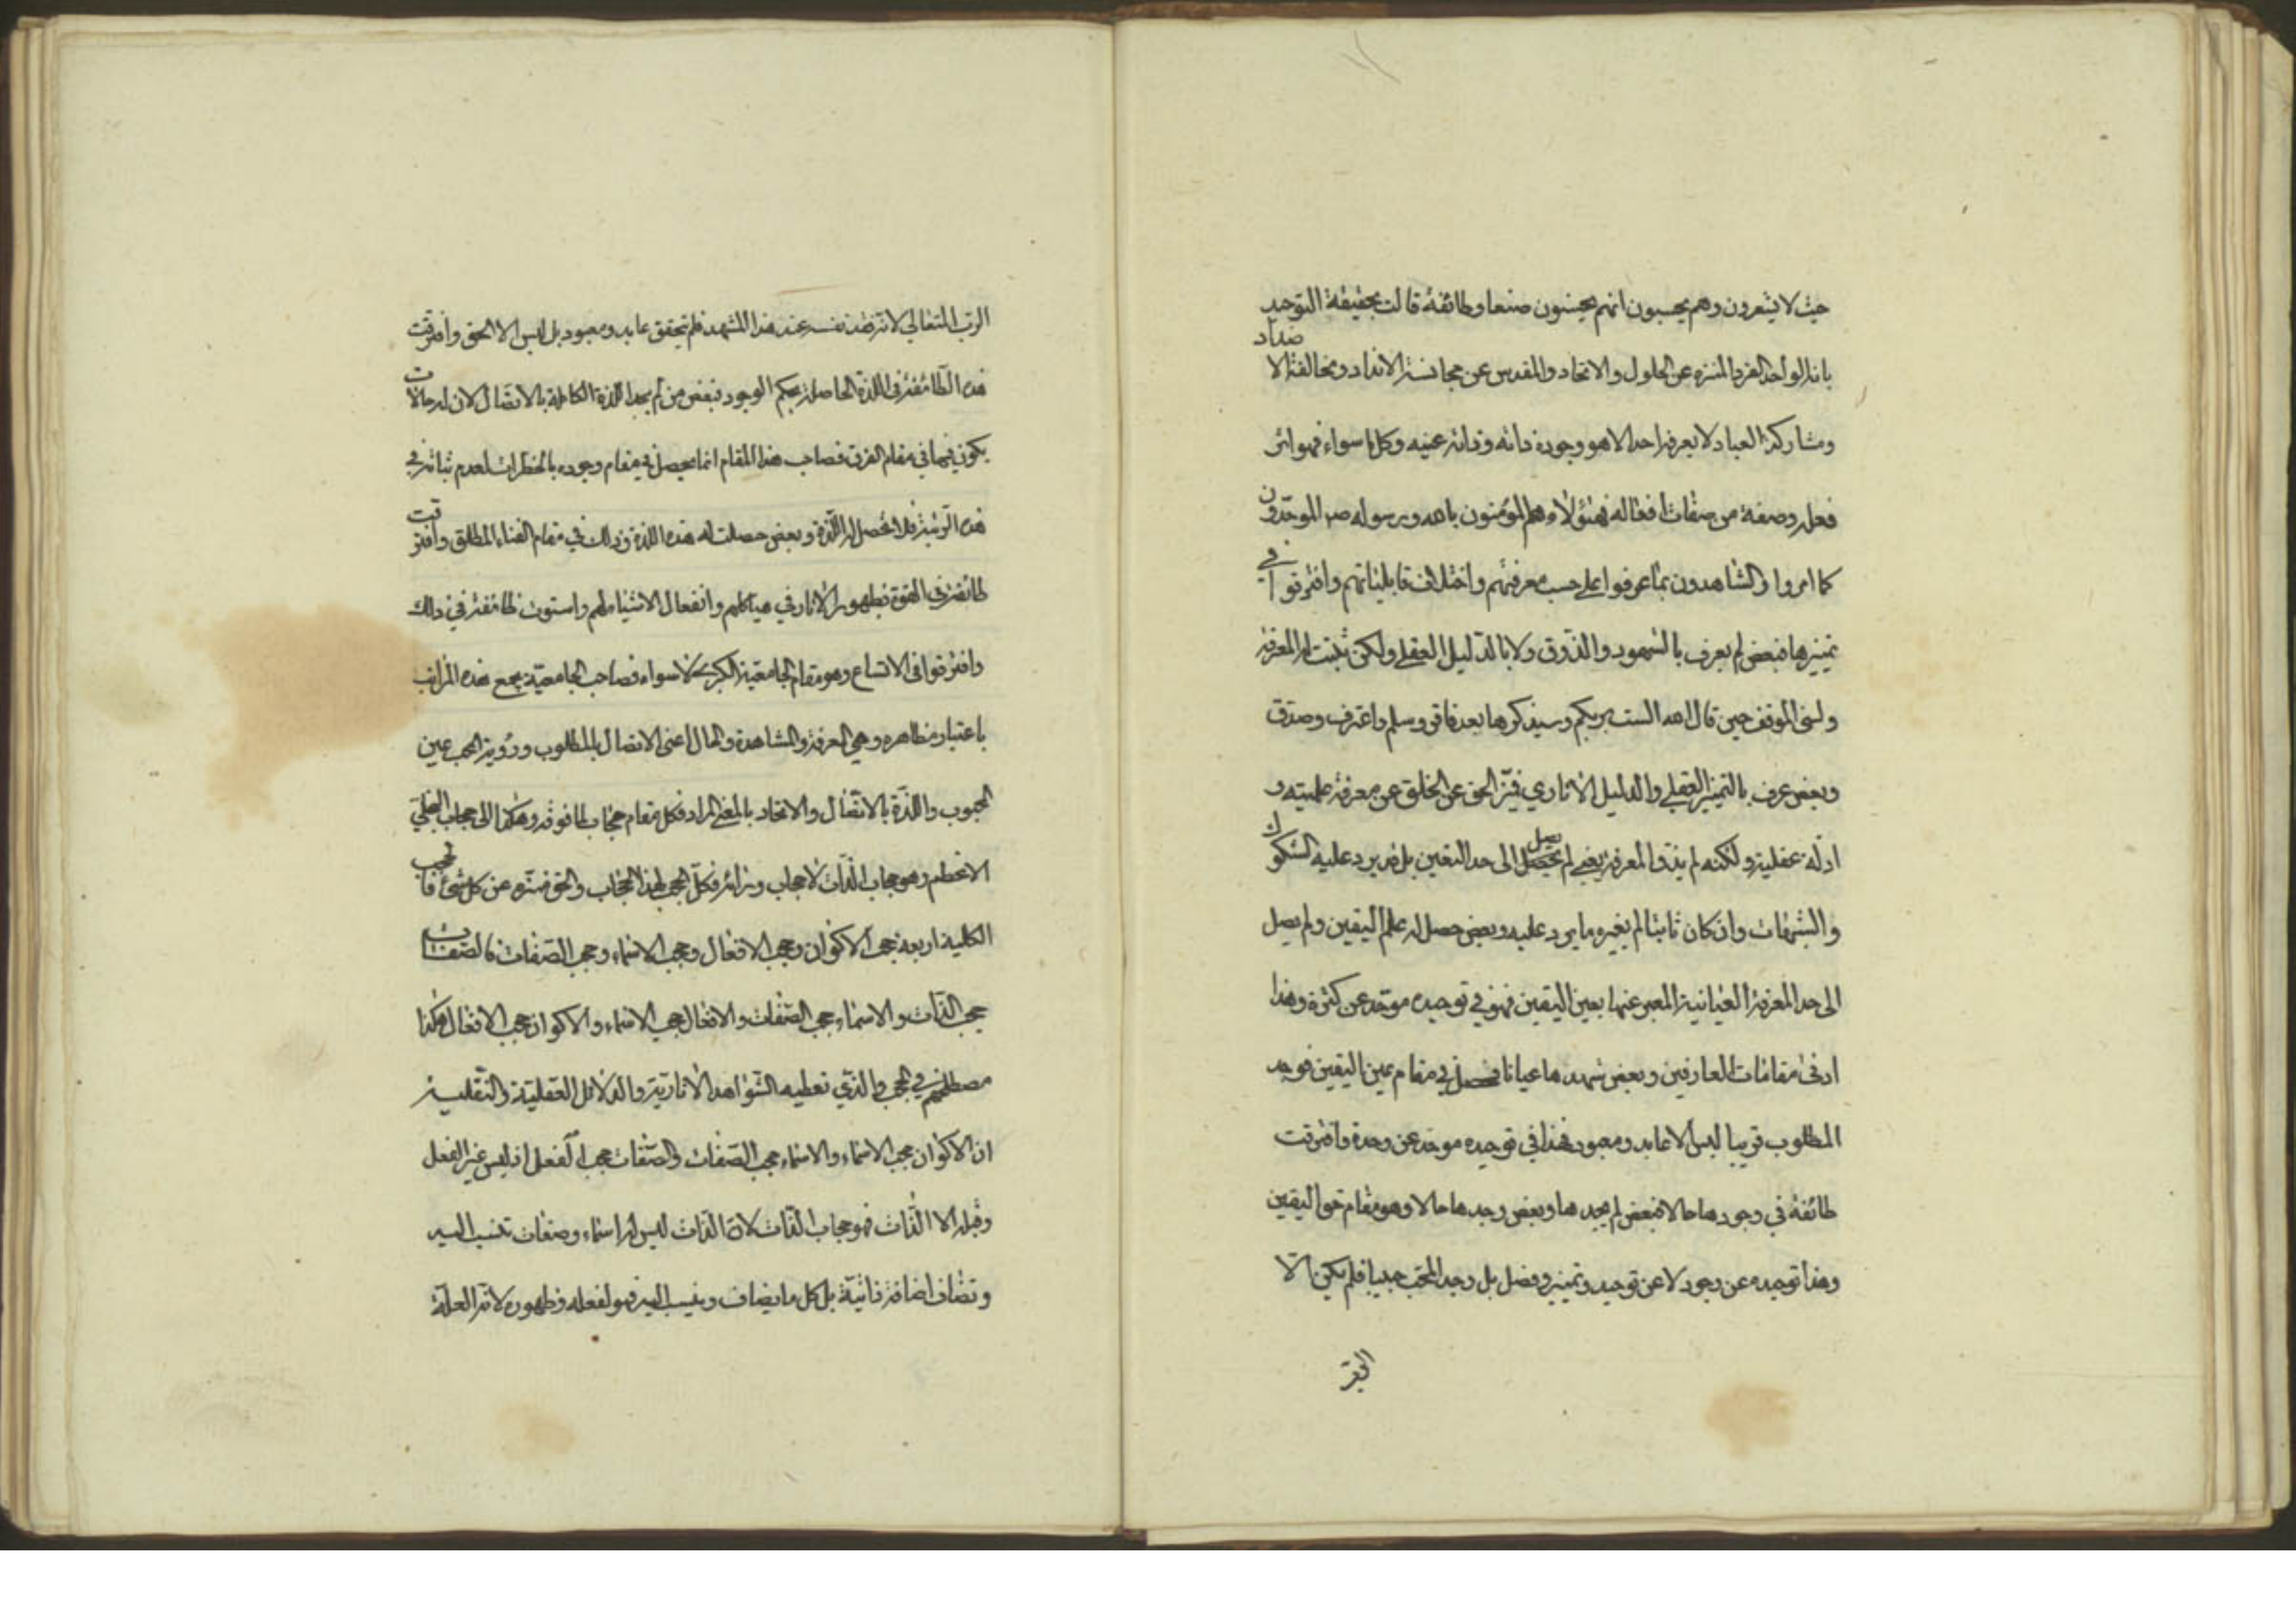 حيث لا يشعرون وهم يحسبون انهم يحسنون صنعا وطائفة قالت بحقيقة التوحيد
بانه الواحد الفرد المنزه عن الحلول والاتحاد والمقدس عن مجانسة الانداد ومخالفة الاضداد
ومشاركة العباد لا يعرفه احد الا هو وجوده ذاته وذاته عينه وكل ما سواه فهو اثر
فعله وصفة من صفات افعاله فهؤلاء هم المؤمنون بالله وبرسوله ص الموحدون
كما امروا والشاهدون بما عرفوا على حسب معرفتهم واختلاف قابلياتهم وافترقوا في
تمييزها فبعض لم يعرف بالشهود والذوق ولا بالدليل العقلي ولكن ثبتت له المعرفة
ونسي الموقف حين قال الله الست بربكم وسيذكرها بعد فاقر وسلم واعترف وصدق
وبعض عرف بالتمييز العقلي والدليل الاثاري فميز الحق عن الخلق عن معرفة علميته و
ادلة عقلية ولكنه لم يذق المعرفة يعني لم يصل الى حد اليقين بل قد يرد عليه الشكوك
والشبهات وان كان ثابتا لم يغيره ما يرد عليه وبعض حصل له علم اليقين ولم يصل
الى حد المعرفة العيانية المعبر عنها بعين اليقين فهو في توحيده موحد عن كثرة وهذا
ادنى مقامات العارفين وبعض شهدها عيانا فحصل في مقام عين اليقين فوجد
المطلوب قريبا ليس الا عابد ومعبود فهذا في توحيده موحد عن وحدة وافترقت
طائفة في وجودها حالا فبعض لم يجدها وبعض وجدها حالا وهو مقام حق اليقين
وهذا توحيده عن وجود لا عن توحيد وتمييز وفصل بل وجد المحب حبيبا فلم يكن الا
الرب المتعالي لا تزهذ نفسه عند هذا المشهد فلم يتحقق عابد ومعبود بل ليس الا الحق وافترقت
هذه الطائفة في اللذة الحاصلة بحكم الوجود فبعض من لم يجد اللذة الكاملة بالاتصال لان له حالات
يكون فيها في مقام الفرق فصاحب هذا المقام انما يحصل في مقام وجوده بالخطرات لعدم ثباته في
هذه الرتبة فلا تحصل له اللذة وبعض حصلت له هذه اللذة وذلك في مقام الفناء المطلق وافترقت
طائفة في القوة بظهور الاثار في هياكلهم وانفعال الاشياء لهم واستوت طائفة في ذلك
وافترقوا في الاتساع وهو مقام الجامعية الكبرى لا سواء فصاحب الجامعية يجمع هذه المراتب
باعتبار مظاهره وهي المعرفة والمشاهدة والحال اعني الاتصال بالمطلوب ورؤية المحب عين
المحبوب واللذة بالاتصال والاتحاد بالمعنى المراد فكل مقام حجاب لما فوقه وهكذا الى حجاب التجلي
الاعظم وهو حجاب الذات لا حجاب وراءه فكل الحجب لهذا الحجاب والحق منزه عن كل شئ فالحجب
الكلية اربعة حجب الاكوان وحجب الافعال وحجب الاسماء وحجب الصفات فالصفات
حجب الذات والاسماء حجب الصفات والافعال حجب الاسماء والاكوان حجب الافعال هكذا
مصطلحهم في الحجب والذي تعطيه الشواهد الاثارية والدلائل العقلية والنقلية
ان الاكوان حجب الاسماء والاسماء حجب الصفات والصفات حجب الفعل اذ ليس غير الفعل
وقبله الا الذات فهو حجاب الذات لان الذات ليس له اسماء وصفات تنسب اليه
وتضاف اضافة ذاتية بل كل ما يضاف وينسب اليه فهو لفعله وظهوره لانه العلة